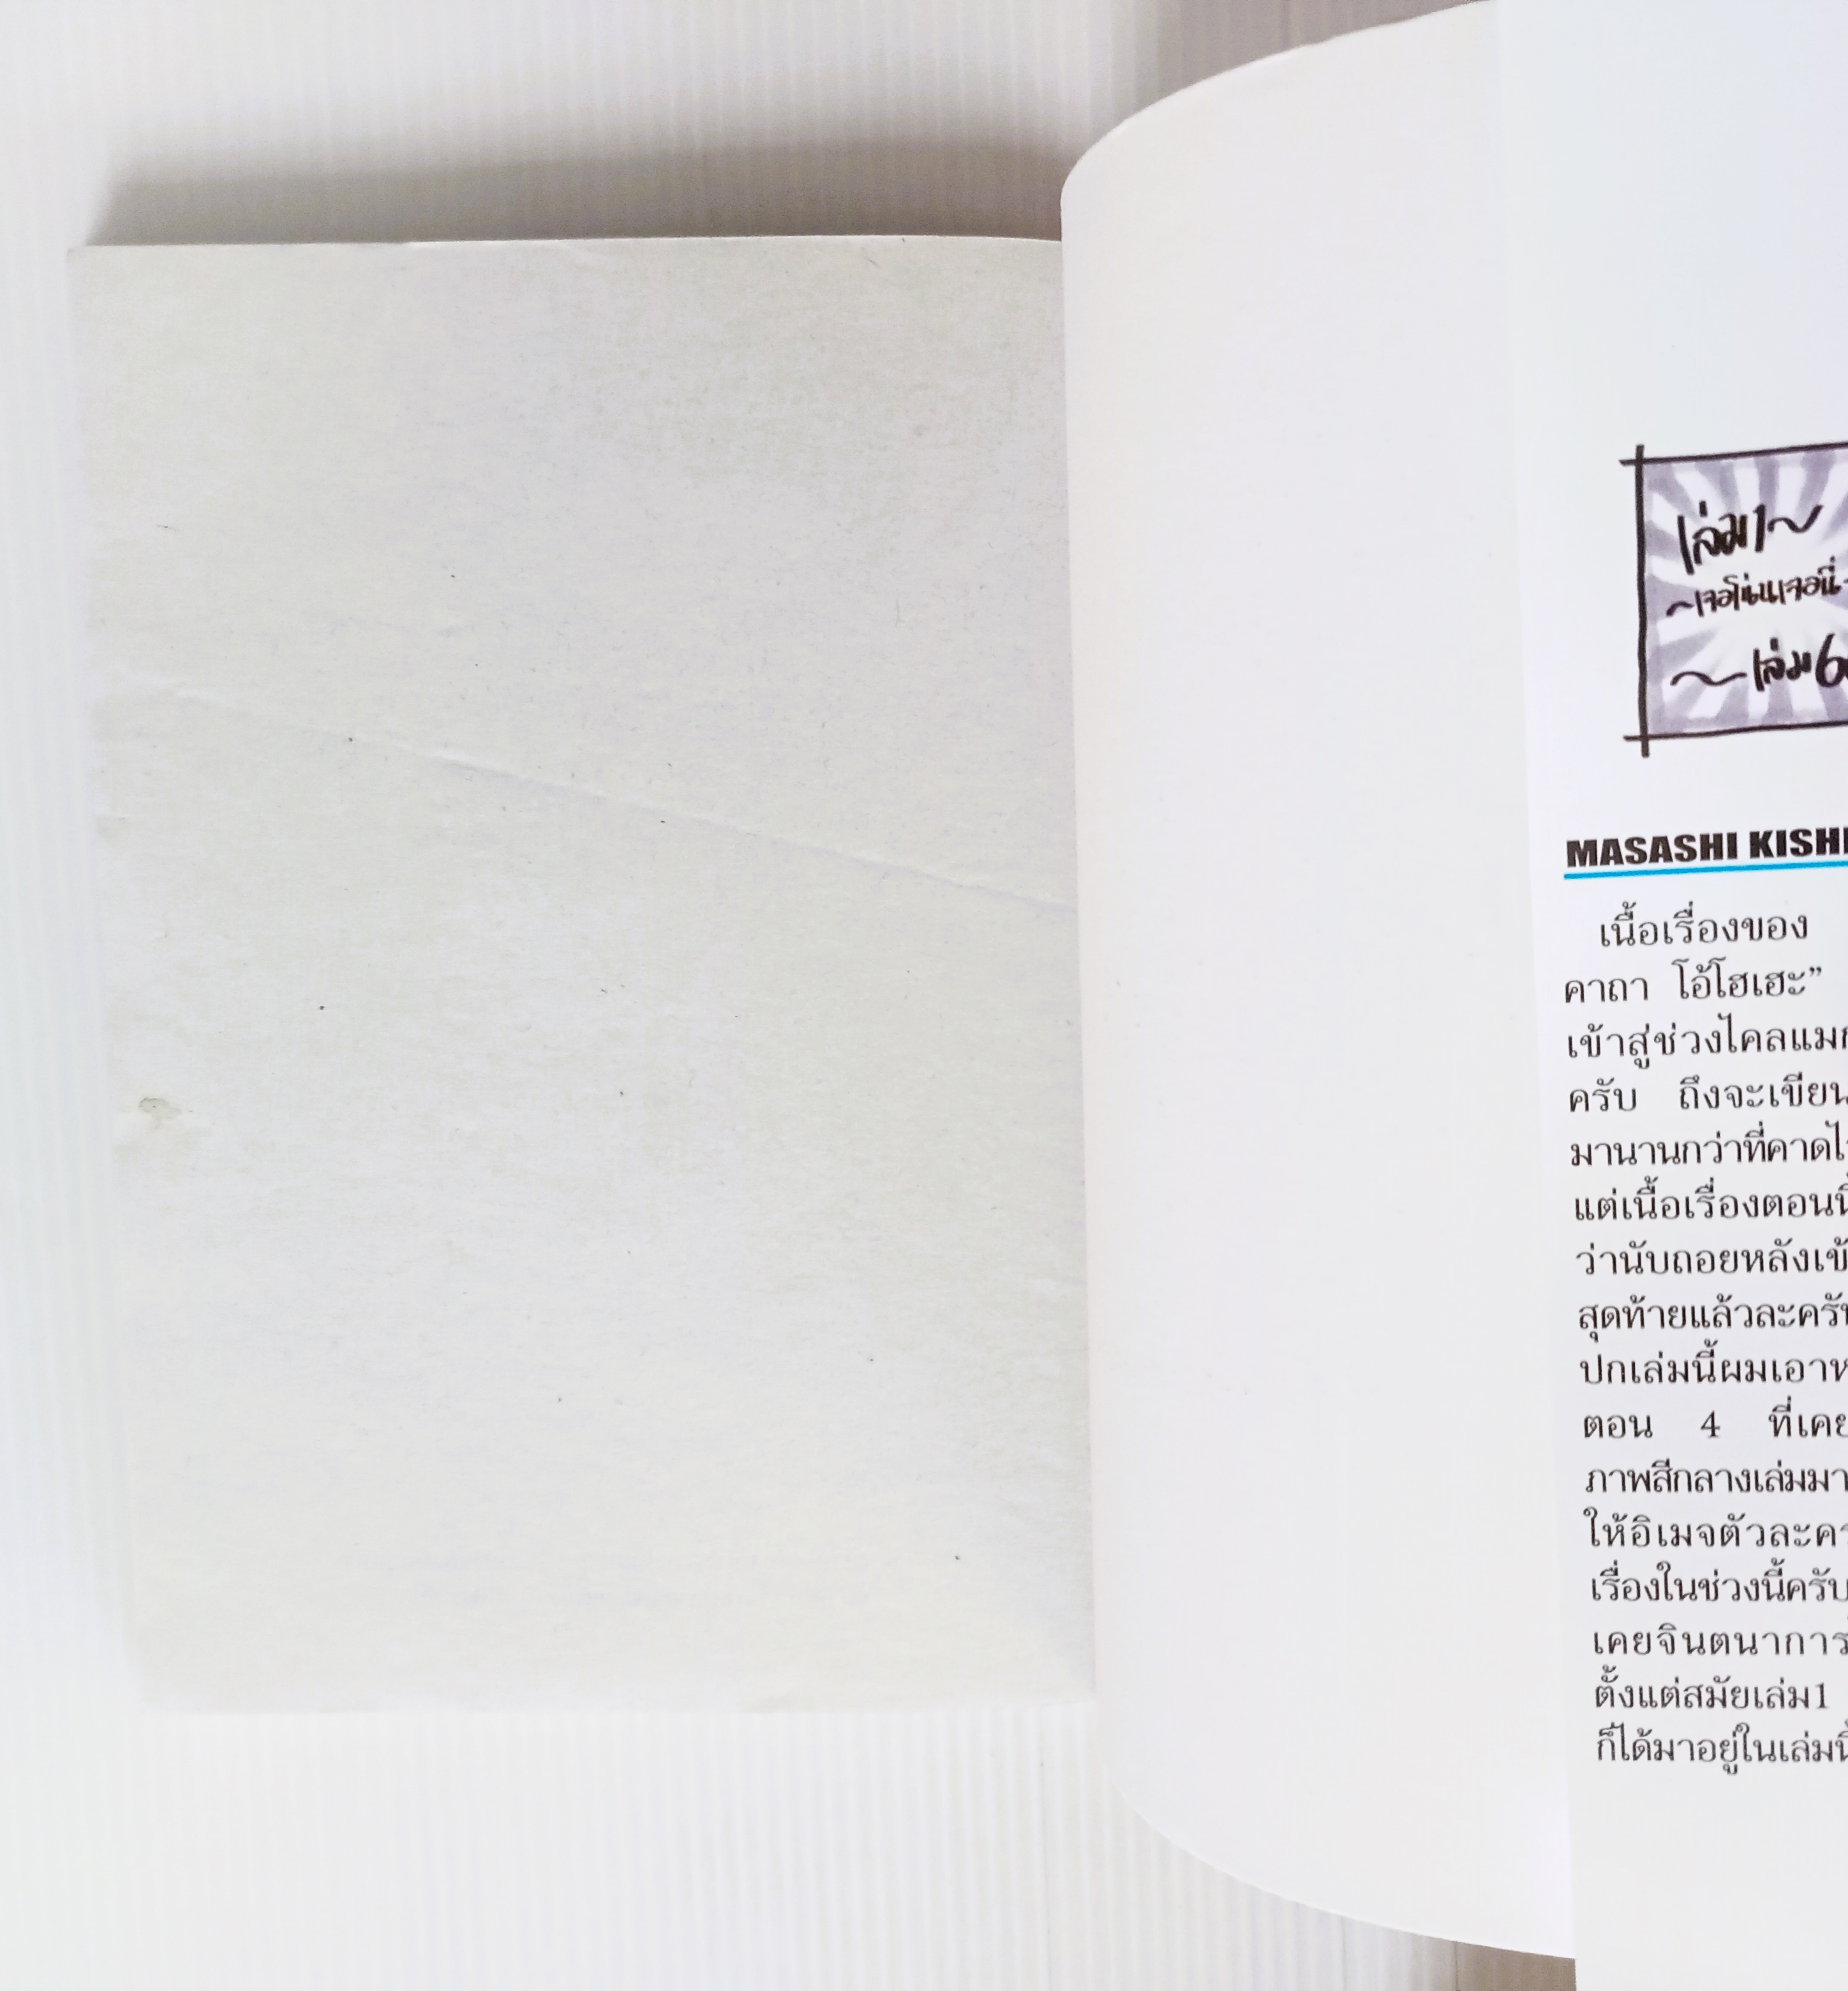 เล่ม1~
~เจอโน่นเจอนี่
~เล่ม6
MASASHI KISHI
เนื้อเรื่องของ
คาถา โอ้โฮเฮะ”
เข้าสู่ช่วงไคลแมก
ครับ ถึงจะเขียน
มานานกว่าที่คาดไ
แต่เนื้อเรื่องตอนนี้
ว่านับถอยหลังเข้
สุดท้ายแล้วละครับ
ปกเล่มนี้ผมเอาห
ตอน 4 ที่เคย
ภาพสีกลางเล่มมา
ให้อิเมจตัวละคร
เรื่องในช่วงนี้ครับ
เคยจินตนาการ
ตั้งแต่สมัยเล่ม1
ก็ได้มาอยู่ในเล่มนี้